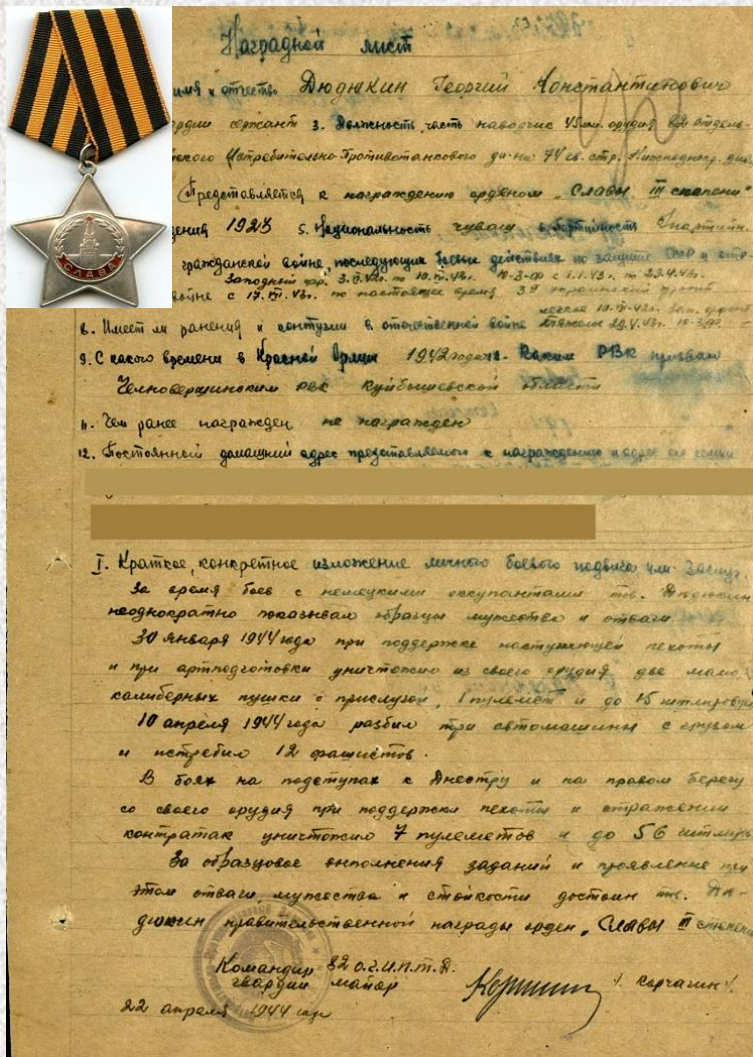 СЛАВА
Наградной лист
имя и отчество Дюдюкин Георгий Константинович
сержант 3. Должность, часть наводчик 45мм. орудия 82 отдель-
Истребительно-Противотанкового ди-на 74 гв. стр. Нижнеднепр. див.
Представляется к награждению орденом „Славы III степени"
1923 5. Национальность чуваш 6. Партийность
гражданской войне, последующих боевых действиях по защите СССР и отеч.
Западный фр. 3. 10. Ю-З-ф с 1.1.43г. по 29.4.43г.
войне с по настоящее время 3й украинский фронт
8. Имеет ли ранения и контузии в отечественной войне
9. С какого времени в Красной Армии 1942 года Каким РВК призван
Челновершинским РВК Куйбышевской области
11. Чем ранее награжден не награжден
12. Постоянный домашний адрес представляемого к награждению и адрес его семьи
I. Краткое, конкретное изложение личного боевого подвига или заслуг.
За время боев с немецкими оккупантами тов. Дюдюкин
неоднократно показывал образцы мужества и отваги
30 января 1944 года при поддержке наступающей пехоты
и при артподготовки уничтожил из своего орудия две мало-
калиберных пушки с прислугой, 1 пулемет и до 15 гитлеровцев
10 апреля 1944 года разбил три автомашины с грузом
и истребил 12 фашистов.
В боях на подступах к Днестру и на правом берегу
со своего орудия при поддержки пехоты и отражении
контратак уничтожил 7 пулеметов и до 56 гитлер
За образцовое выполнения заданий и проявление при
этом отваги, мужества и стойкости достоин тов. Дю-
дюкин правительственной награды орден „Славы III степени
Командир 82 о.г.и.п.т.д.
гвардии майор /Корчагин/.
22 апреля 1944 года